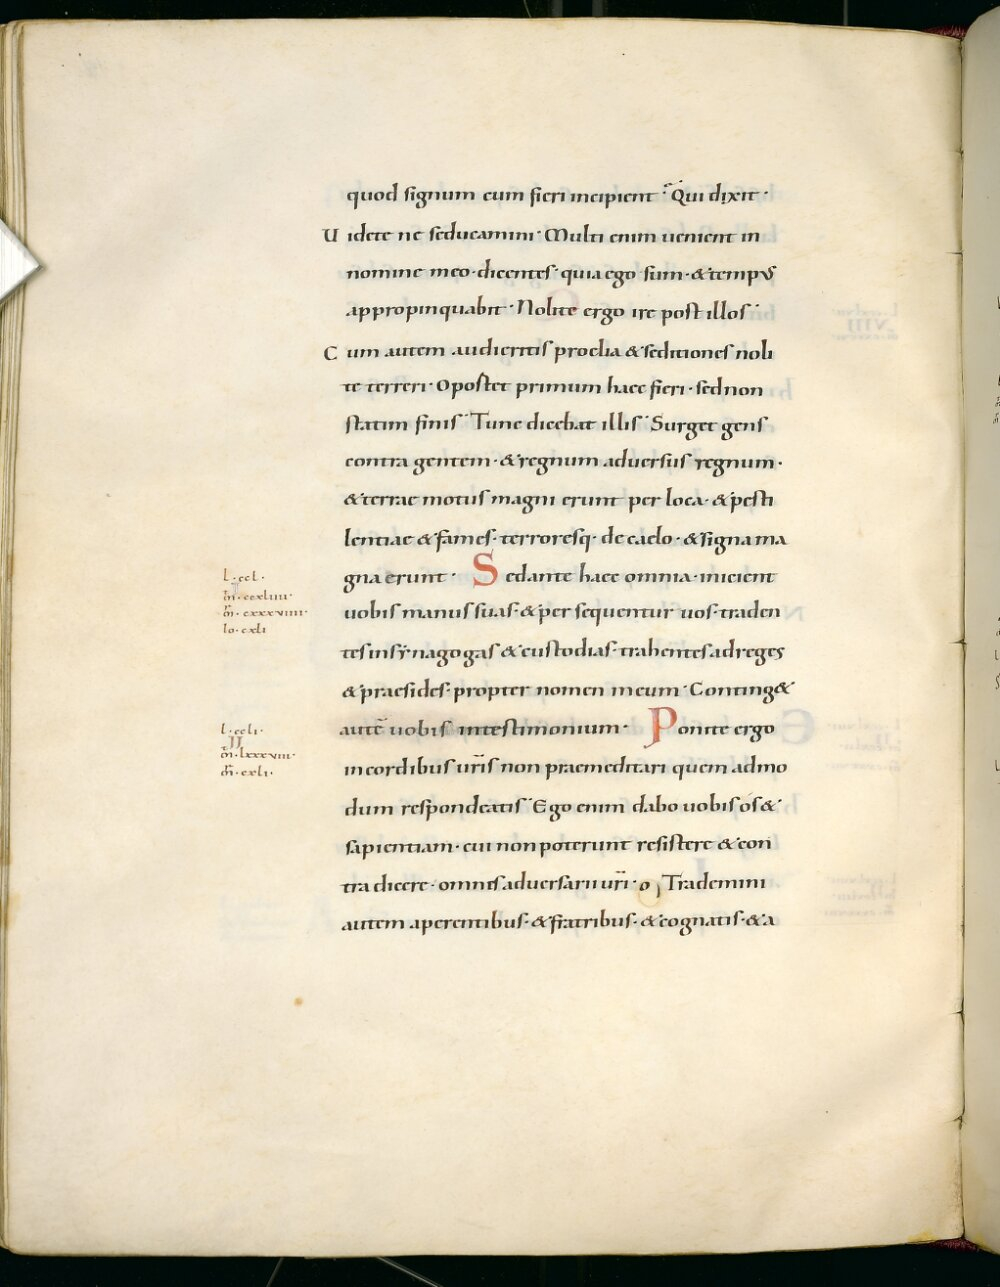 quod signum cum fieri incipient· Qui dixit·
Uidete ne seducamini· Multi enim uenient in
nomine meo· dicentes· quia ego sum· & tempus
appropinquabit· Nolite ergo ire post illos·
Cum autem audieritis proelia & seditiones noli
te terreri· Oportet primum haec fieri· sed non
statim finis· Tunc dicebat illis· Surget gens
contra gentem· & regnum aduersus regnum·
& terrae motus magni erunt per loca· & pesti
lentiae & fames· terroresq· de caelo· & signa ma
gna erunt· Sed ante haec omnia· inicient
uobis manus suas· & persequentur uos· traden
tes in synagogas & custodias· trahentes ad reges
& praesides· propter nomen meum· Conting&
autē uobis in testimonium· Ponite ergo
in cordibus ur̄is non praemeditari quem admo
dum respondeatis· Ego enim dabo uobis os &
sapientiam· cui non poterunt resistere & con
tradicere· omnes aduersarii ur̄i· Trademini
autem a parentibus· & fratribus· & cognatis· & a
l·ccl·
m̄·ccxliiii·
m̄·cxxxviiii·
io·cxli
l·ccli·
II
m̄·lxxxviii·
m̄·cxli·